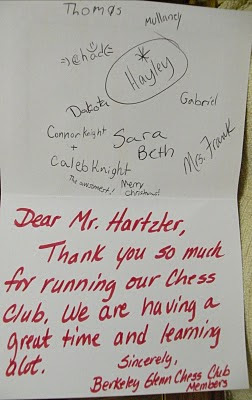 Thomas
Mullaney
=)Chad(=
Hayley
Dakota
Gabriel
Connor Knight
+
Caleb Knight
Sara
Beth
Mrs. Frank
The awesomest!
Merry
Christmas!
Dear Mr. Hartzler,
Thank you so much
for running our Chess
Club. We are having a
great time and learning
alot.
Sincerely,
Berkeley Glenn Chess Club
Members